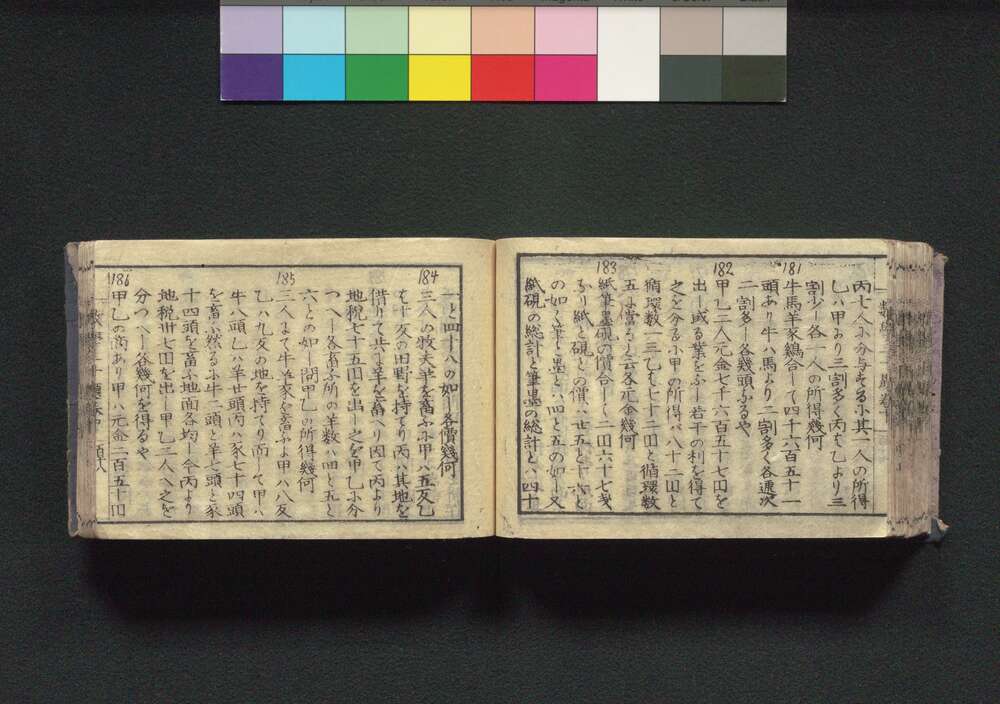 丙七人小分与をる小其一人の所得
乙ハ甲より三割多く丙も乙より三
割少し各一人の所得幾何
181
牛馬羊豕鷄合して四千六百五十一
頭あり牛ハ馬より二割多く各逓次
二割多し各幾頭ふるや
182
甲乙二人元金七千六百五十七田を
出し或る業をふし若干の利を得て
之を分る小甲の所得ハ八十二田と
循環数一三乙も七十二田と循環数
五小當ると云各元金幾何
183
紙筆墨硯の價合して二田六十七戋
ふり紙と硯との價ハ廿五と十六と
の如く筆と墨とハ四と五の如し又
紙硯の総計と筆墨の総計とハ四十
一と四十八の如し各價幾何
184
三人の牧夫羊を畜ふ小甲ハ五反乙
も十反の田野を持てり丙ハ其地を
借りて共に羊を畜へり因て丙より
地税七十五田を出し之を甲乙小分
つへし各畜ふ所の羊数ハ四と五と
六との如し問甲乙の所得幾何
185
三人まて牛羊豕を畜ふ甲ハ八反
乙ハ九反の地を持てり而して甲ハ
牛八頭乙ハ羊廿頭丙ハ豕七十四頭
を畜ふ然る小牛二頭と羊七頭と豕
十四頭を畜ふ地面各均し今丙より
地税卅七田を出し甲乙三人へ之を
分つへし各幾何を得るや
186
甲乙の商あり甲ハ元金二百五十田